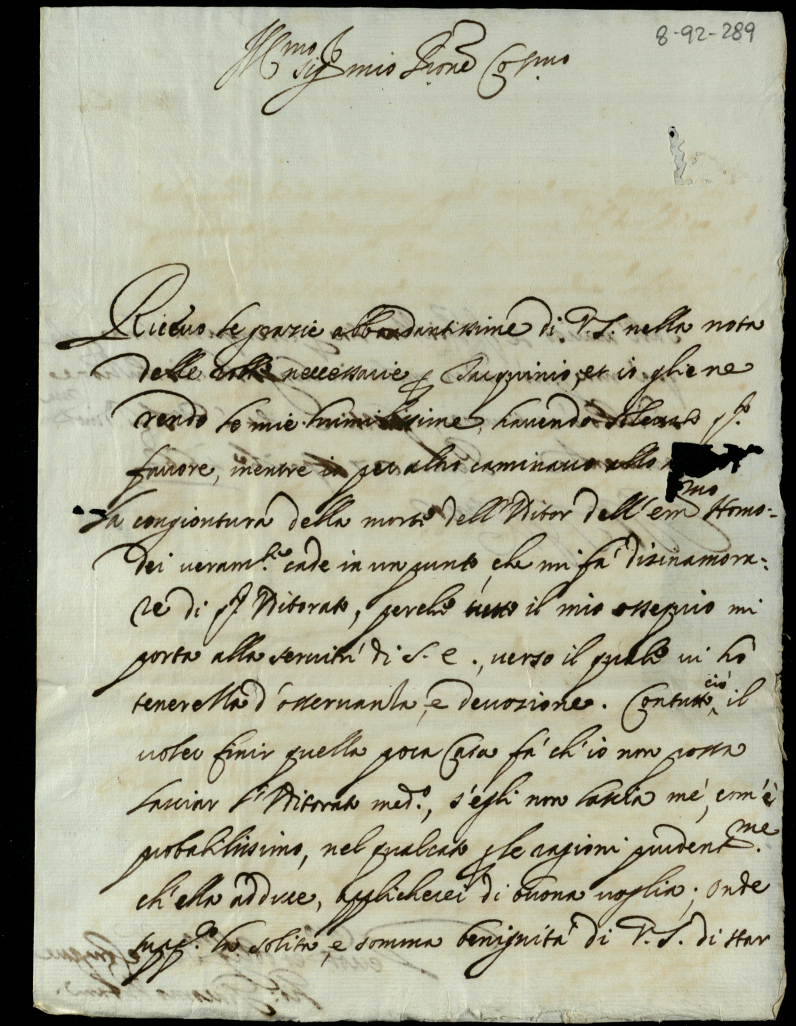 8-92-289
Ill.mo Sig.r mio Prone Col.mo
Riceuo le grazie abbondantissime di V.S. nella nota
delle necessarie p Tarquinio, et io gliene
rendo le mie humilissime, hauendo p.
fauore, mentre io per altro caminauo allo
la congiontura della morte dell'Vditor dell'em.mo Homo-
dei ueram.te cade in un punto, che mi fa' disinamora-
re di q.to Vditorato, perche tutto il mio ossequio mi
porta alla seruitu' di S. E., uerso il quale ui ho
tenerezza d'osseruanza, e deuozione. Contutto ciò, il
uoler finir quella poca Casa fa' ch'io non possa
lasciar l'Vditorato med.o, s'egli non lascia me, com'è
probabilissimo, nel qual caso p le ragioni prudent.me
ch'ella adduce, applicherei di buona uoglia; onde
supp.co la solita, e somma benignita' di V.S. di star